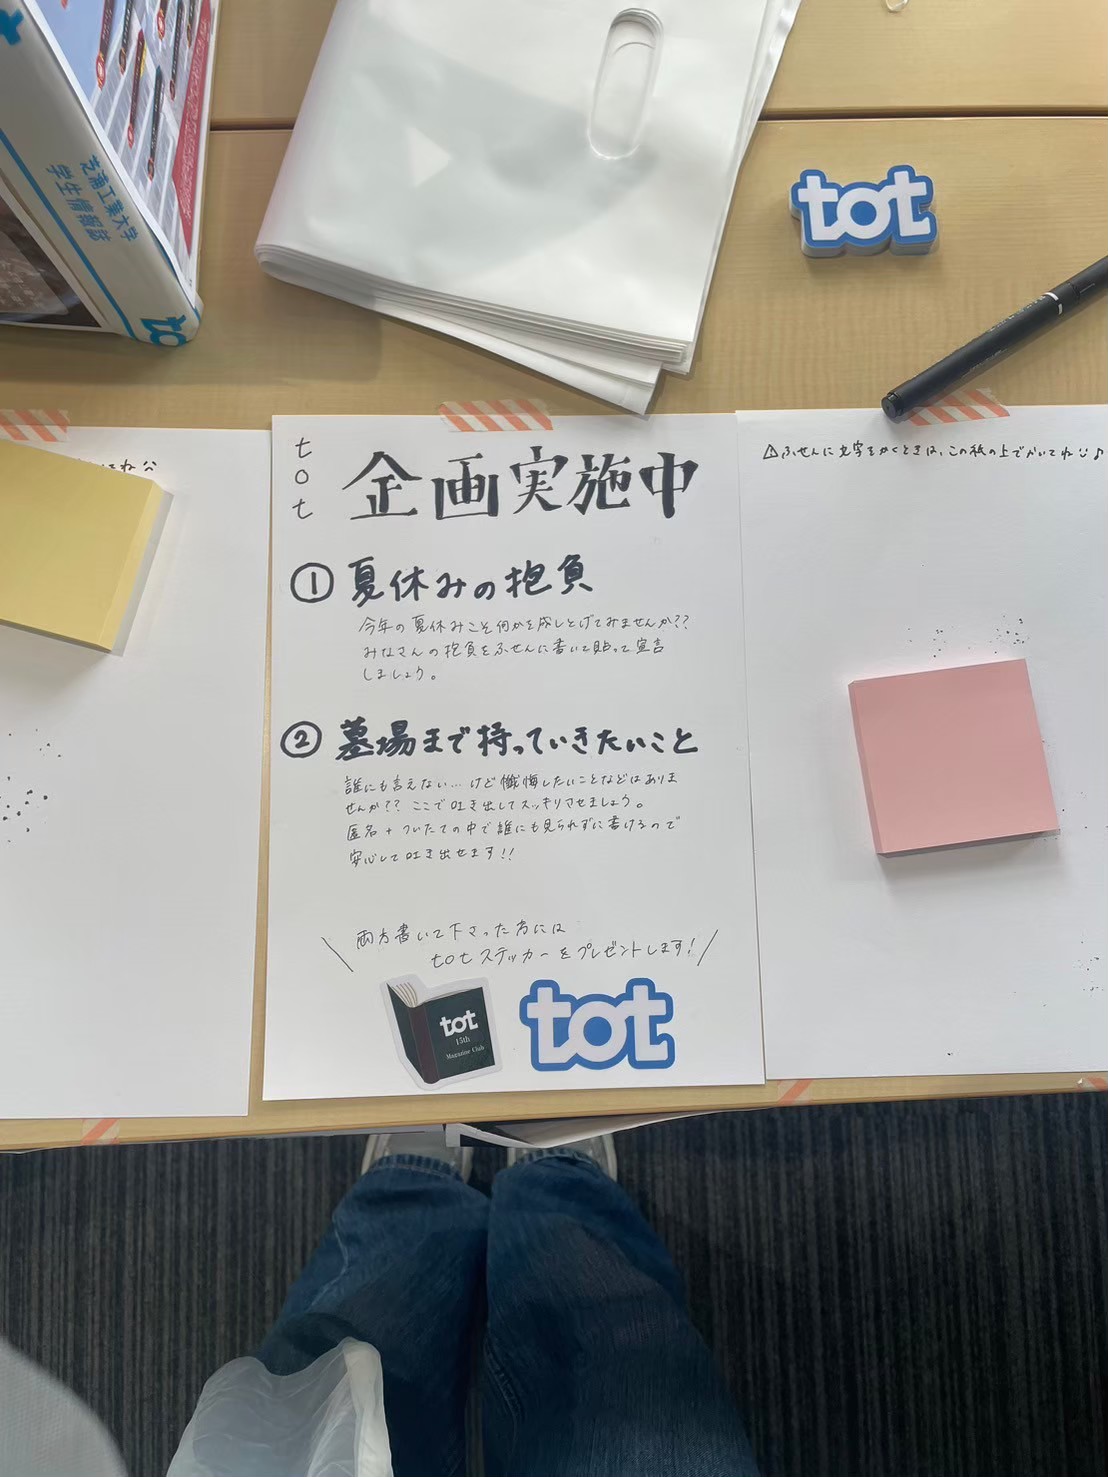 芝浦工業大学
学生情報誌
tot
tot
ね
⚠ふせんに文字をかくときは、この紙の上でかいてね♪
tot
企画実施中
① 夏休みの抱負
今年の夏休みこそ何かを成しとげてみませんか??
みなさんの抱負をふせんに書いて貼って宣言
しましょう。
② 墓場まで持っていきたいこと
誰にも言えない…けど懺悔したいことなどはありま
せんか?? ここで吐き出してスッキリさせましょう。
匿名+ついたての中で誰にも見られずに書けるので
安心して吐き出せます!!
両方書いて下さった方には
totステッカーをプレゼントします!
tot
15th
Magazine Club
tot